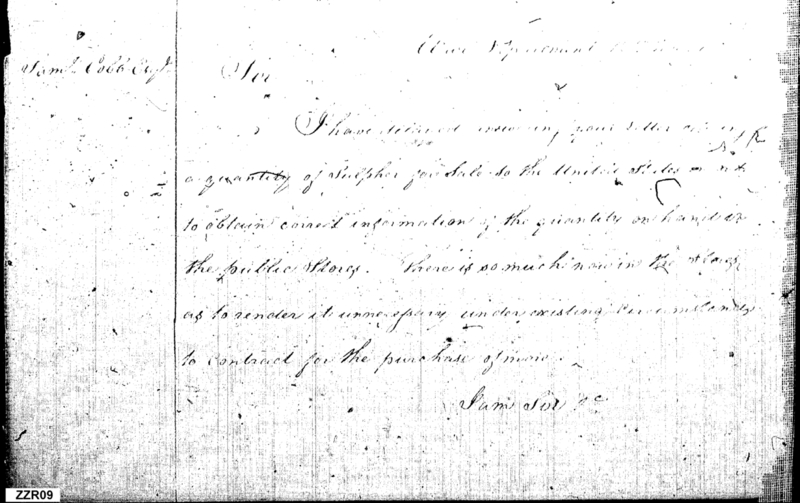 War Department
Saml. Cobb Esqr.
Sir
I have delayed answering your letter
a quantity of Sulpher for Sale to the United States
to obtain correct information of the quantity on hand in
the public Stores. There is so much now in the Stores
as to render it unnecessary under existing Circumstances
to contract for the purchase of more.
I am Sir &c
ZZR09